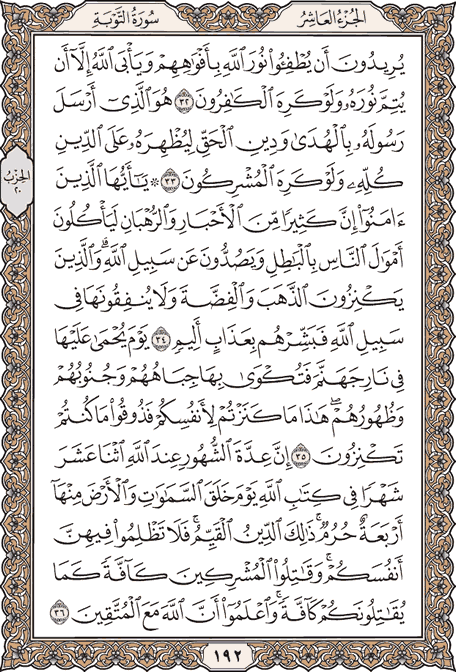 الجزء العاشر
سورة التوبة
يُرِيدُونَ أَن يُطْفِـُٔوا۟ نُورَ ٱللَّهِ بِأَفْوَٰهِهِمْ وَيَأْبَى ٱللَّهُ إِلَّآ أَن
يُتِمَّ نُورَهُۥ وَلَوْ كَرِهَ ٱلْكَٰفِرُونَ ٣٢ هُوَ ٱلَّذِىٓ أَرْسَلَ
رَسُولَهُۥ بِٱلْهُدَىٰ وَدِينِ ٱلْحَقِّ لِيُظْهِرَهُۥ عَلَى ٱلدِّينِ
كُلِّهِۦ وَلَوْ كَرِهَ ٱلْمُشْرِكُونَ ٣٣ ۞ يَٰٓأَيُّهَا ٱلَّذِينَ
ءَامَنُوٓا۟ إِنَّ كَثِيرًا مِّنَ ٱلْأَحْبَارِ وَٱلرُّهْبَانِ لَيَأْكُلُونَ
أَمْوَٰلَ ٱلنَّاسِ بِٱلْبَٰطِلِ وَيَصُدُّونَ عَن سَبِيلِ ٱللَّهِ ۗ وَٱلَّذِينَ
يَكْنِزُونَ ٱلذَّهَبَ وَٱلْفِضَّةَ وَلَا يُنفِقُونَهَا فِى
سَبِيلِ ٱللَّهِ فَبَشِّرْهُم بِعَذَابٍ أَلِيمٍ ٣٤ يَوْمَ يُحْمَىٰ عَلَيْهَا
فِى نَارِ جَهَنَّمَ فَتُكْوَىٰ بِهَا جِبَاهُهُمْ وَجُنُوبُهُمْ
وَظُهُورُهُمْ ۖ هَٰذَا مَا كَنَزْتُمْ لِأَنفُسِكُمْ فَذُوقُوا۟ مَا كُنتُمْ
تَكْنِزُونَ ٣٥ إِنَّ عِدَّةَ ٱلشُّهُورِ عِندَ ٱللَّهِ ٱثْنَا عَشَرَ
شَهْرًا فِى كِتَٰبِ ٱللَّهِ يَوْمَ خَلَقَ ٱلسَّمَٰوَٰتِ وَٱلْأَرْضَ مِنْهَآ
أَرْبَعَةٌ حُرُمٌ ۚ ذَٰلِكَ ٱلدِّينُ ٱلْقَيِّمُ ۚ فَلَا تَظْلِمُوا۟ فِيهِنَّ
أَنفُسَكُمْ ۚ وَقَٰتِلُوا۟ ٱلْمُشْرِكِينَ كَآفَّةً كَمَا
يُقَٰتِلُونَكُمْ كَآفَّةً ۚ وَٱعْلَمُوٓا۟ أَنَّ ٱللَّهَ مَعَ ٱلْمُتَّقِينَ ٣٦
الحزب
٢٠
١٩٢